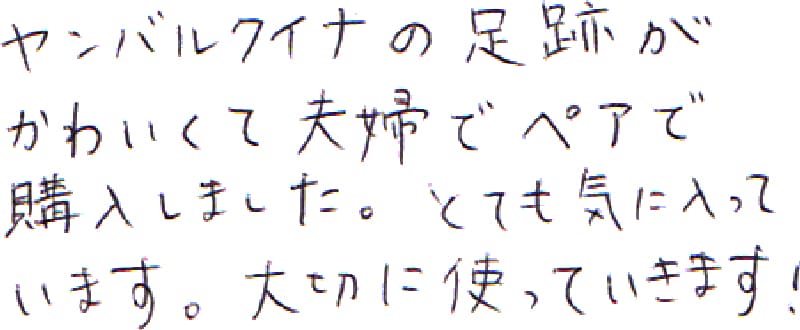 ヤンバルクイナの足跡が
かわいくて夫婦でペアで
購入しました。とても気に入って
います。大切に使っていきます!